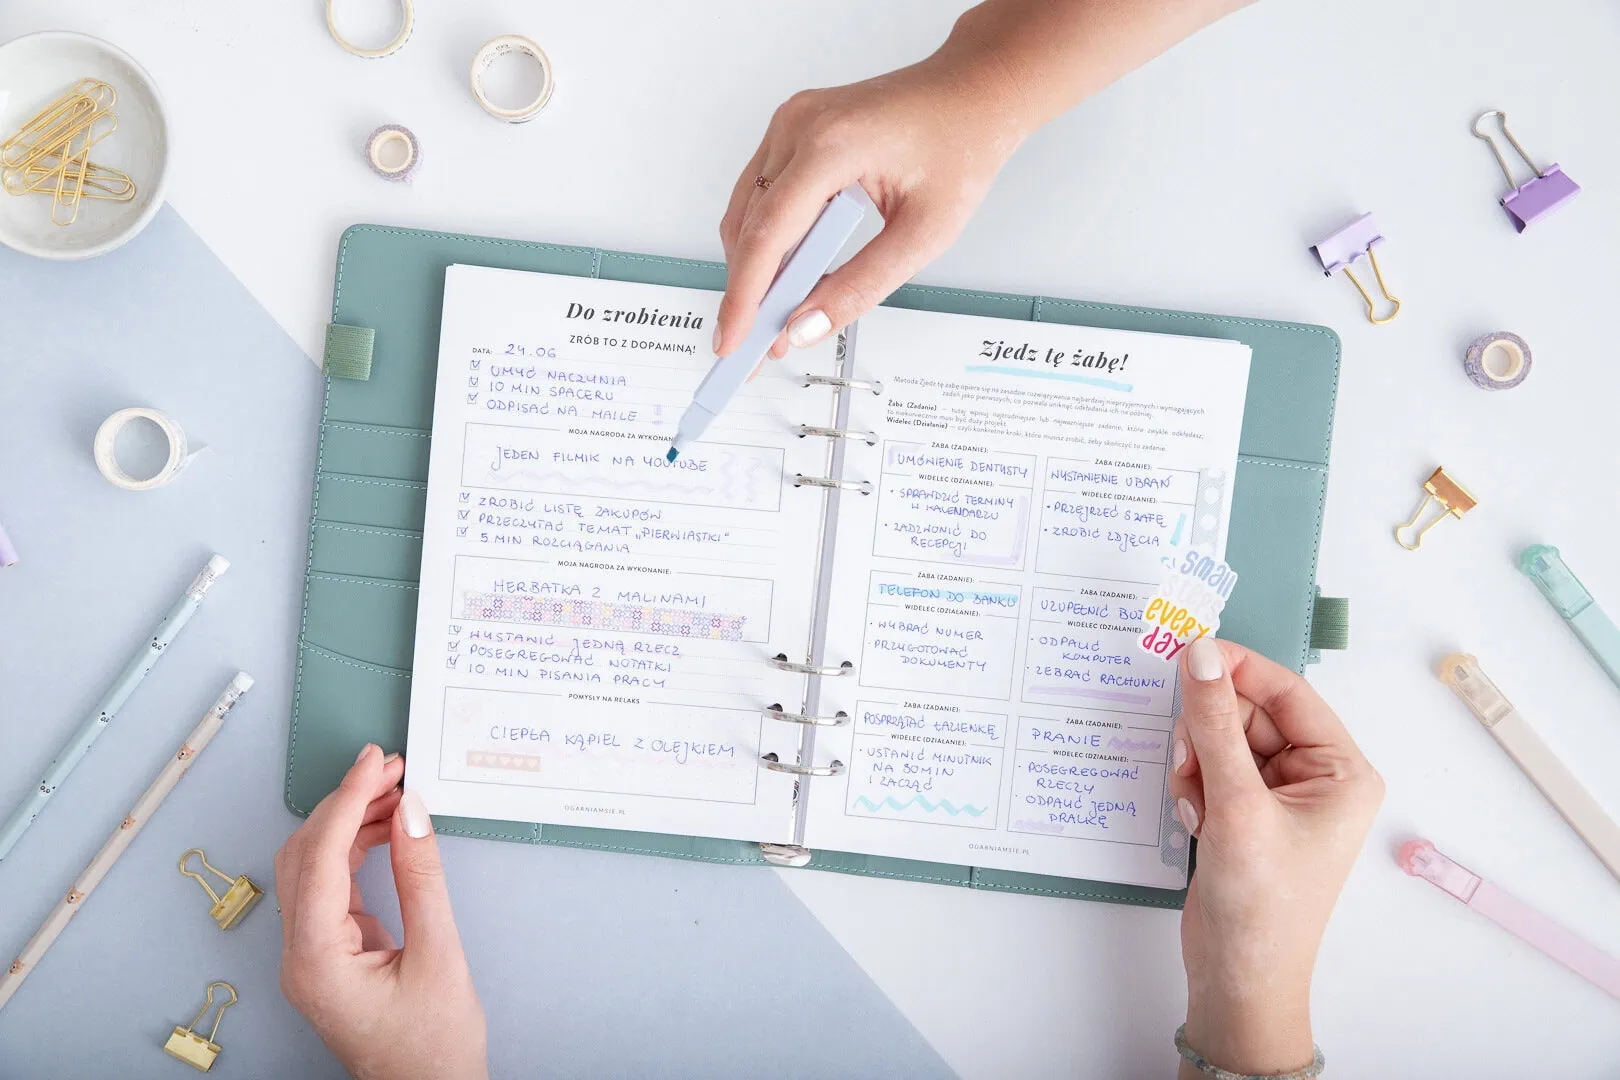 Do zrobienia
ZRÓB TO Z DOPAMINĄ!
DATA: 24.06
UMYĆ NACZYNIA
10 MIN SPACERU
ODPISAĆ NA MAILE
MOJA NAGRODA ZA
JEDEN FILMIK NA YOUTUBE
ZROBIĆ LISTĘ ZAKUPÓW
PRZECZYTAĆ TEMAT „PIERWIASTKI"
5 MIN ROZCIĄGANIA
MOJA NAGRODA ZA WYKONANIE:
HERBATKA Z MALINAMI
WYSTAWIĆ JEDNĄ RZECZ
POSEGREGOWAĆ NOTATKI
10 MIN PISANIA PRACY
POMYSŁY NA RELAKS
CIEPŁA KĄPIEL Z OLEJKIEM
OGARNIAMSIE.PL
Zjedz tę żabę!
Metoda Zjedz tę żabę opiera się na zasadzie rozwiązywania najbardziej nieprzyjemnych i wymagających
zadań jako pierwszych, co pozwala uniknąć odkładania ich na później.
Żaba (Zadanie) — tutaj wpisuj najtrudniejsze lub najważniejsze zadanie, które zwykle odkładasz,
to niekoniecznie musi być duży projekt.
Widelec (Działanie) — czyli konkretne kroki, które musisz zrobić, żeby skończyć to zadanie.
ŻABA (ZADANIE):
UMÓWIENIE DENTYSTY
WIDELEC (DZIAŁANIE):
• SPRAWDZIĆ TERMINY
W KALENDARZU
• ZADZWONIĆ DO
RECEPCJI
ŻABA (ZADANIE):
WYSTAWIENIE UBRAŃ
WIDELEC (DZIAŁANIE):
• PRZEJRZEĆ SZAFĘ
• ZROBIĆ ZDJĘCIA
ŻABA (ZADANIE):
TELEFON DO BANKU
WIDELEC (DZIAŁANIE):
• WYBRAĆ NUMER
• PRZYGOTOWAĆ
DOKUMENTY
ŻABA (ZADANIE):
UZUPEŁNIĆ
WIDELEC (DZIAŁANIE):
• ODPALIĆ
KOMPUTER
• ZEBRAĆ RACHUNKI
ŻABA (ZADANIE):
POSPRZĄTAĆ ŁAZIENKĘ
WIDELEC (DZIAŁANIE):
• USTAWIĆ MINUTNIK
NA 30 MIN
I ZACZĄĆ
ŻABA (ZADANIE):
PRANIE
WIDELEC (DZIAŁANIE):
• POSEGREGOWAĆ
RZECZY
• ODPALIĆ JEDNĄ
PRALKĘ
OGARNIAMSIE.PL
small
steps
every
day